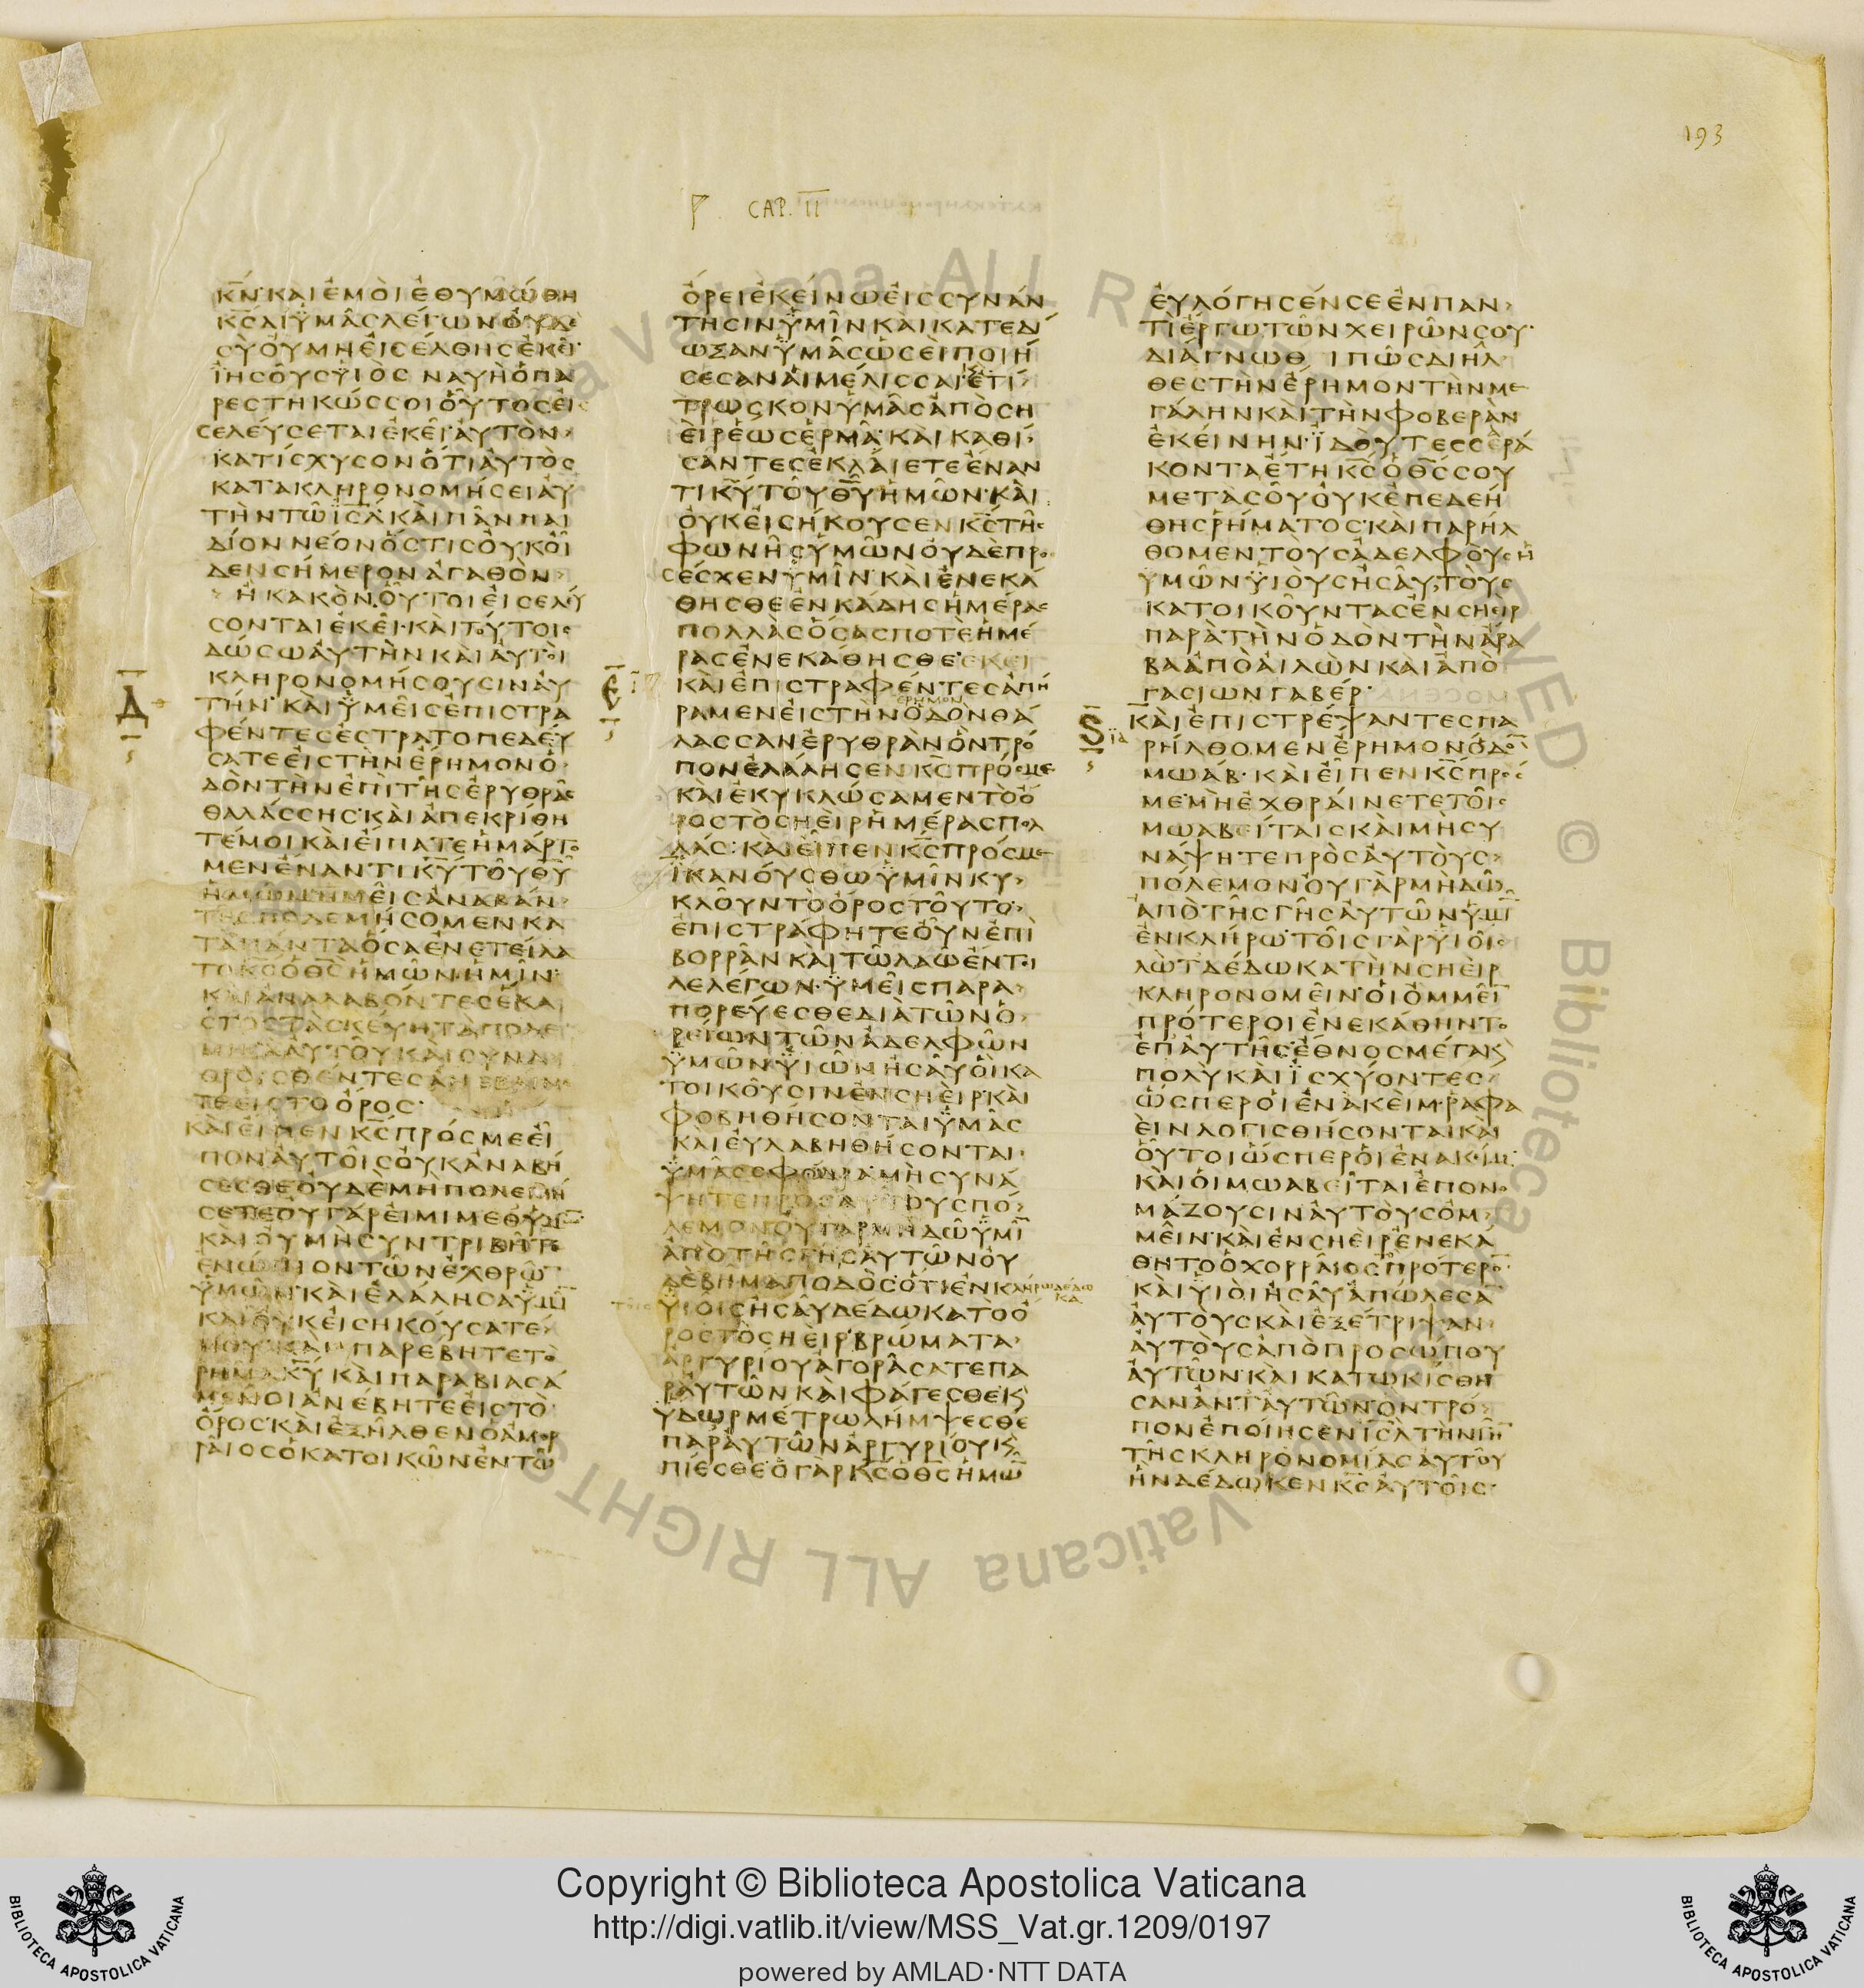 193
CAP. II
κ̅ν̅· καὶ ἐμοὶ ἐθυμώθη
κ̅ς̅ δι ὑμᾶς λέγων οὐδὲ
σὺ οὐ μὴ εἰσέλθῃς ἐκεῖ·
ἰησοῦς υἱὸς ναυὴ ὁ πα
ρεστηκώς σοι οὗτος εἰ
σελεύσεται ἐκεῖ· αὐτὸν
κατίσχυσον ὅτι αὐτὸς
κατακληρονομήσει αὐ
τὴν τῷ ι̅σ̅λ̅· καὶ πᾶν παι
δίον νέον ὅστις οὐκ οἶ
δεν σήμερον ἀγαθὸν
ἢ κακὸν οὗτοι εἰσελεύ
σονται ἐκεῖ· καὶ τούτοις
δώσω αὐτὴν καὶ αὐτοὶ
κληρονομήσουσιν αὐ
Δ
τήν· καὶ ὑμεῖς ἐπιστρα
φέντες ἐστρατοπεδεύ
σατε εἰς τὴν ἔρημον ὁ
δὸν τὴν ἐπὶ τῆς ἐρυθρᾶς
θαλάσσης· καὶ ἀπεκρίθη
τέ μοι καὶ εἴπατε ἡμάρτο
μεν ἔναντι κ̅υ̅ τοῦ θ̅υ̅
ἡμῶν ἡμεῖς ἀναβάν
τες πολεμήσομεν κα
τὰ πάντα ὅσα ἐνετείλα
το κ̅ς̅ ὁ θ̅ς̅ ἡμῶν ἡμῖν·
καὶ ἀναλαβόντες ἕκα
στος τὰ σκεύη τὰ πολε
μικὰ αὐτοῦ καὶ συνα
θροισθέντες ἀνεβαίνε
τε εἰς τὸ ὄρος·
καὶ εἶπεν κ̅ς̅ πρός με εἶ
πον αὐτοῖς οὐκ ἀναβή
σεσθε οὐδὲ μὴ πολεμή
σετε οὐ γάρ εἰμι μεθ ὑμῶ̅·
καὶ οὐ μὴ συντριβῆτε
ἐνώπιον τῶν ἐχθρῶ̅
ὑμῶν· καὶ ἐλάλησα ὑμῖ̅
καὶ οὐκ εἰσηκούσατέ
μου καὶ παρέβητε τὸ
ρῆμα κ̅υ̅ καὶ παραβιασά
μενοι ἀνέβητε εἰς τὸ
ὄρος· καὶ ἐξῆλθεν ὁ ἀμορ
ραῖος ὁ κατοικῶν ἐν τῷ
ὄρει ἐκείνω εἰς συνάν
τησιν ὑμῖν καὶ κατεδί
ωξαν ὑμᾶς ὡσεὶ ποιή
σεσαν αἱ μέλισσαι· ἐτί
τρωσκον ὑμᾶς ἀπὸ ση
εὶρ ἕως ἑρμᾶ· καὶ καθί
σαντες ἐκλαίετε ἔναν
τι κ̅υ̅ τοῦ θ̅υ̅ ἡμῶν· καὶ
οὐκ εἰσήκουσεν κ̅ς̅ τῆς
φωνῆς ὑμῶν οὐδὲ προ
σέσχεν ὑμῖν· καὶ ἐνεκά
θησθε ἐν κάδης ἡμέρας
πολλὰς ὅσας ποτὲ ἡμέ
ρας ἐνεκάθησθε ἐκεῖ
Ε
καὶ ἐπιστραφέντες ἀπή
ερημον
ραμεν εἰς τὴν ὁδὸν θά
λασσαν ἐρυθρὰν ὃν τρό
πον ἐλάλησεν κ̅ς̅ πρός με
καὶ ἐκυκλώσαμεν τὸ ὄ
ρος τὸ σηεὶρ ἡμέρας πολ
λάς· καὶ εἶπεν κ̅ς̅ πρός με
ἱκανούσθω ὑμῖν κυ
κλοῦν τὸ ὄρος τοῦτο·
ἐπιστράφητε οὖν ἐπὶ
βορρᾶν καὶ τῷ λαῷ ἔντι
λε λέγων· ὑμεῖς παρα
πορεύεσθε διὰ τῶν ὁ
ρείων τῶν ἀδελφῶν
ὑμῶν υἱῶν ησαῦ οἳ κα
τοικοῦσιν ἐν σηείρ· καὶ
φοβηθήσονται ὑμᾶς
καὶ εὐλαβηθήσονται
ὑμᾶς σφόδρα· μὴ συνά
ψητε πρὸς αὐτοὺς πό
λεμον οὐ γὰρ μὴ δῶ ὑμῖ̅
ἀπὸ τῆς γῆς αὐτῶν οὐ
δὲ βῆμα ποδὸς ὅτι ἐν κλήρω δέδω
κα
υἱοῖς ησαῦ δέδωκα τὸ ὄ
ρος τὸ σηείρ· βρώματα
ἀργυρίου ἀγοράσατε πα
ρ αὐτῶν καὶ φάγεσθε κ̀
ὕδωρ μέτρω λήμψεσθε
παρ αὐτῶν ἀργυρίου κ̀
πίεσθε· ὁ γὰρ κ̅ς̅ ὁ θ̅ς̅ ἡμῶ̅
εὐλόγησέν σε ἐν παν
τὶ ἔργω τῶν χειρῶν σου·
διάγνωθι πῶς διῆλ
θες τὴν ἔρημον τὴν με
γάλην καὶ τὴν φοβερὰν
ἐκείνην· ἰδοὺ τεσσερά
κοντα ἔτη κ̅ς̅ ὁ θ̅ς̅ σου
μετὰ σοῦ οὐκ ἐπεδεή
θης ῥήματος· καὶ παρήλ
θομεν τοὺς ἀδελφοὺς ἡ
μῶν υἱοὺς ησαῦ τοὺς
κατοικοῦντας ἐν σηειρ
παρὰ τὴν ὁδὸν τὴν ἀρα
βα ἀπὸ αἰλὼν καὶ ἀπὸ
γασιων γαβέρ·
Ϛ
καὶ ἐπιστρέψαντες πα
ρήλθομεν ἔρημον ὁδὸ̅
μωάβ· καὶ εἶπεν κ̅ς̅ πρός
με μὴ ἐχθραίνετε τοῖς
μωαβείταις καὶ μὴ συ
νάψητε πρὸς αὐτοὺς
πόλεμον οὐ γὰρ μὴ δῶ
ἀπὸ τῆς γῆς αὐτῶν ὑμῖ̅
ἐν κλήρω· τοῖς γὰρ υἱοῖς
λὼτ δέδωκα τὴν σηεὶρ
κληρονομεῖν· οἱ ὀμμεὶ̅
πρότεροι ἐνεκάθηντο
ἐπ αὐτῆς ἔθνος μέγα κ̀
πολὺ καὶ ἰσχύοντες
ὥσπερ οἱ ἐνακείμ· ραφα
εὶν λογισθήσονται καὶ
οὗτοι ὥσπερ οἱ ἐνακείμ·
καὶ οἱ μωαβεῖται ἐπονο
μάζουσιν αὐτοὺς ὀμ
μεῖν· καὶ ἐν σηεὶρ ἐνεκά
θητο ὁ χορραῖος πρότερο̅·
καὶ υἱοὶ ησαῦ ἀπώλεσα̅
αὐτοὺς καὶ ἐξέτριψαν
αὐτοὺς ἀπὸ προσώπου
αὐτῶν· καὶ κατωκίσθη
σαν ἀντ αὐτῶν ὃν τρό
πον ἐποίησεν ι̅σ̅λ̅ τὴν γῆ̅
τῆς κληρονομίας αὐτοῦ
ἣν δέδωκεν κ̅ς̅ αὐτοῖς·
Copyright © Biblioteca Apostolica Vaticana
http://digi.vatlib.it/view/MSS_Vat.gr.1209/0197
powered by AMLAD·NTT DATA
BIBLIOTECA APOSTOLICA VATICANA
BIBLIOTECA APOSTOLICA VATICANA